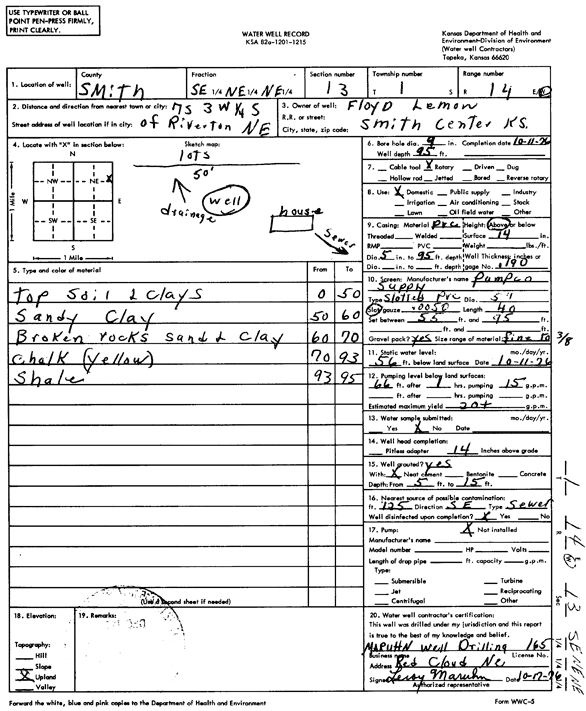 USE TYPEWRITER OR BALL
POINT PEN-PRESS FIRMLY,
PRINT CLEARLY.
WATER WELL RECORD
KSA 82a-1201-1215
Kansas Department of Health and
Environment-Division of Environment
(Water well Contractors)
Topeka, Kansas 66620
1. Location of well: County Smith Fraction SE 1/4 NE 1/4 NE 1/4 Section number 13 Township number T 1 S Range number R 14 E/W
2. Distance and direction from nearest town or city: 7S 3W 1/4 S
Street address of well location if in city: of Riverton NE
3. Owner of well: Floyd Lemon
R.R. or street:
City, state, zip code: Smith Center KS.
4. Locate with "X" in section below:
N
NW NE X
W E
SW SE
S
1 Mile
1 Mile
Sketch map:
lots
50'
well
drainage
house
Sewer
6. Bore hole dia. 9 in. Completion date 10-11-76
Well depth 95 ft.
7. Cable tool X Rotary Driven Dug
Hollow rod Jetted Bored Reverse rotary
8. Use: X Domestic Public supply Industry
Irrigation Air conditioning Stock
Lawn Oil field water Other
9. Casing: Material PVC Height: Above or below
Threaded Welded Surface 14 in.
RMP PVC Weight lbs./ft.
Dia. 5 in. to 95 ft. depth Wall Thickness: inches or
Dia. in. to ft. depth gage No. .190
10. Screen: Manufacturer's name Pumpco
Supply
Type Slotted PVC Dia. 5"
Slot/gauze .0050 Length 40
Set between 55 ft. and 95 ft.
ft. and ft.
Gravel pack? yes Size range of material fine to 3/8
11. Static water level: mo./day/yr.
56 ft. below land surface Date 10-11-76
12. Pumping level below land surfaces:
66 ft. after 1 hrs. pumping 15 g.p.m.
ft. after hrs. pumping g.p.m.
Estimated maximum yield 20+ g.p.m.
13. Water sample submitted: mo./day/yr.
Yes X No Date
14. Well head completion:
Pitless adapter 14 Inches above grade
15. Well grouted? yes
With: X Neat cement Bentonite Concrete
Depth: From 5 ft. to 15 ft.
16. Nearest source of possible contamination:
ft. 125 Direction SE Type Sewer
Well disinfected upon completion? X Yes No
17. Pump: X Not installed
Manufacturer's name
Model number HP Volts
Length of drop pipe ft. capacity g.p.m.
Type:
Submersible Turbine
Jet Reciprocating
Centrifugal Other
5. Type and color of material From To
Top Soil & Clays 0 50
Sandy Clay 50 60
Broken rocks sand & Clay 60 70
Chalk (yellow) 70 93
Shale 93 95
(Use a second sheet if needed)
18. Elevation:
Topography:
Hill
Slope
X Upland
Valley
19. Remarks:
20. Water well contractor's certification:
This well was drilled under my jurisdiction and this report
is true to the best of my knowledge and belief.
Maruhn Well Drilling 165
Business name License No.
Address Red Cloud Ne
Signed Leroy Maruhn Date 10-17-76
Authorized representative
T 1
R 14 W
Sec 13
SE NE NE
1/4 1/4 1/4
Forward the white, blue and pink copies to the Department of Health and Environment
Form WWC-5